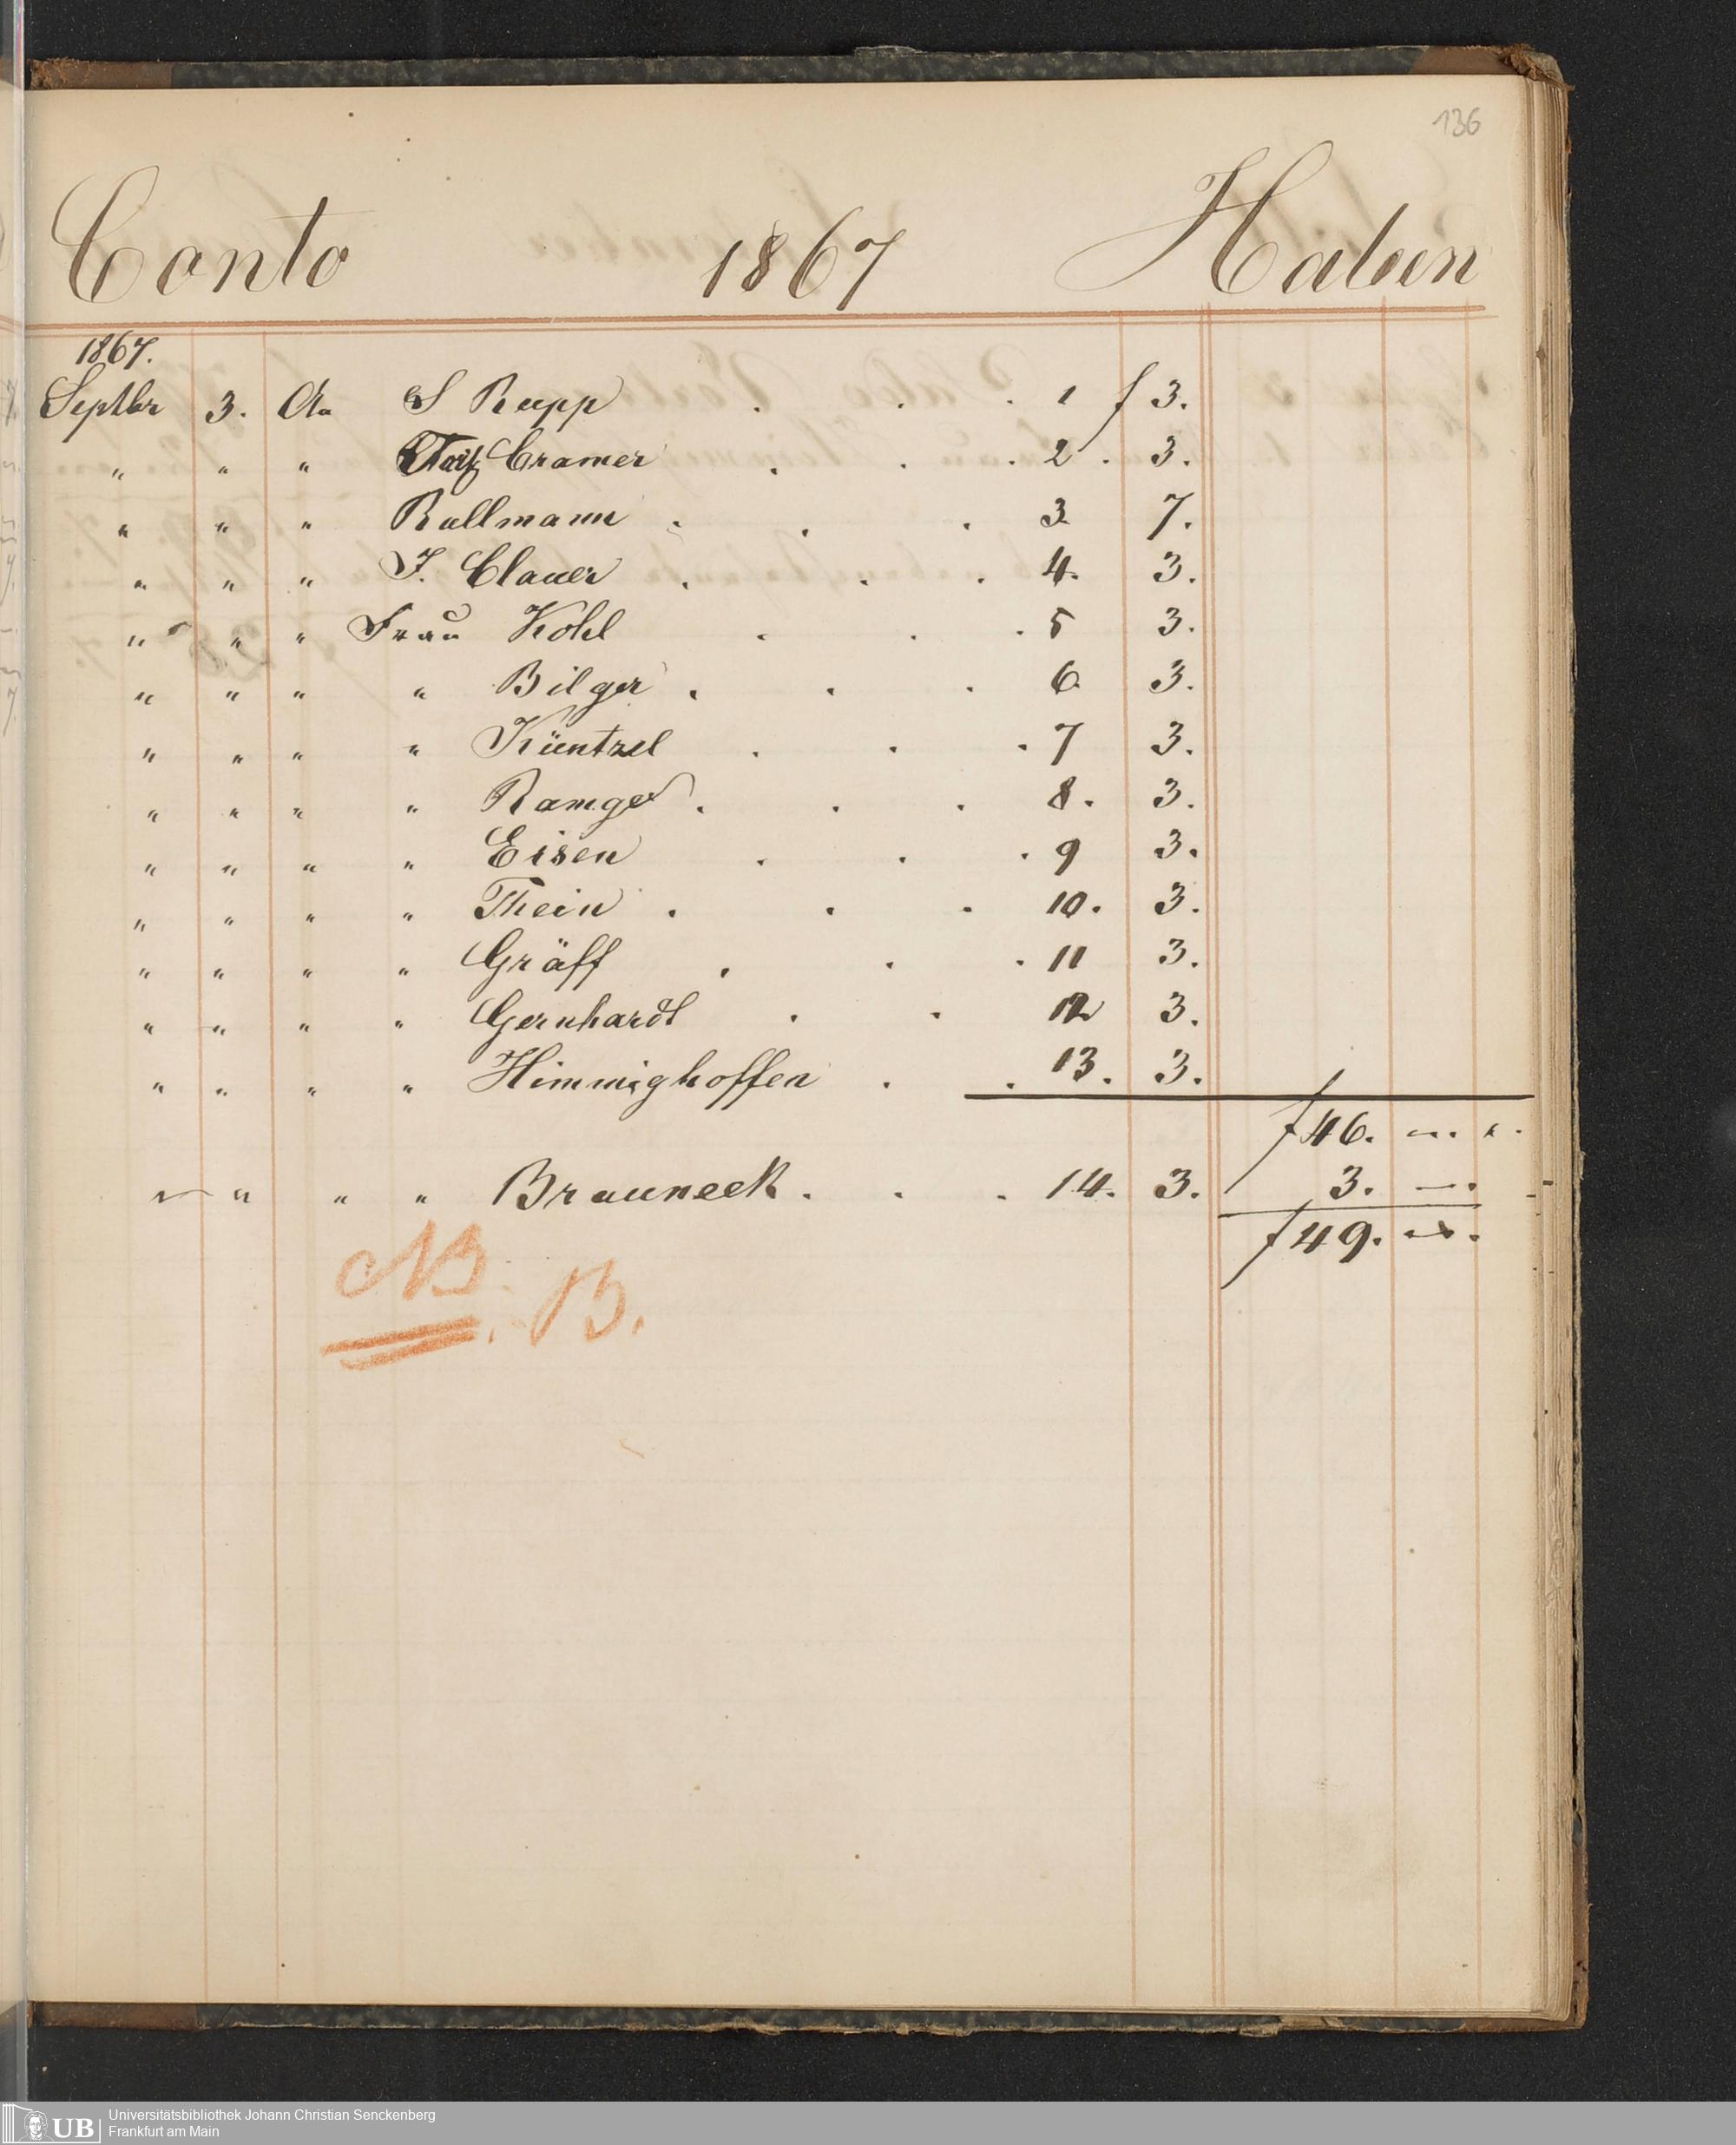 136
Conto 1867 Haben
1867.
Septbr 3. An S Rupp . . . 1 f 3.
" " " Cramer . . . 2 . 3.
" " " Rullmann . . . 3 7.
" " " J. Clauer . . . 4. 3.
" " " Frau Kohl . . . 5 3.
" " " " Bilger . . . 6 3.
" " " " Küntzel . . . 7 3.
" " " " Ramge . . . 8. 3.
" " " " Eisen . . . 9 3.
" " " " Thein . . . 10. 3.
" " " " Gräff . . . 11 3.
" " " " Gernhardt . . 12 3.
" " " " Himmighoffen . . 13. 3.
f 46. —. x.
" " " " Brauneck . . . 14. 3. 3. —.
f 49. —.
NB. B.
UB Universitätsbibliothek Johann Christian Senckenberg
Frankfurt am Main